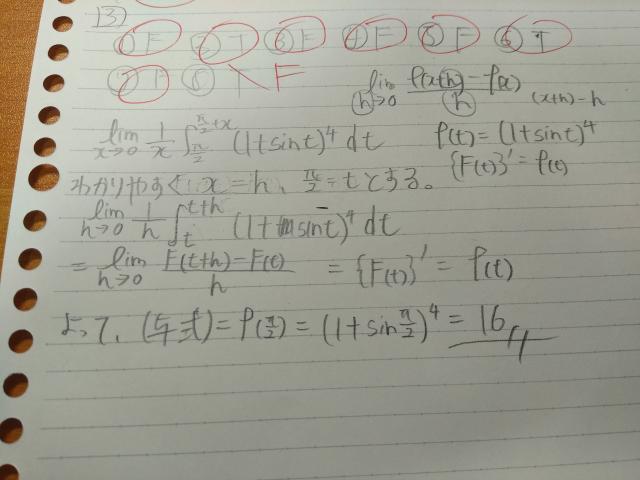 (3)
① F ② T ③ F ④ F ⑤ F ⑥ T
⑦ F ⑧ T F
lim h→0 f(x+h)-f(x) / h (x+h)-h
lim x→0 1/x ∫_{π/2}^{π/2+x} (1+sint)^4 dt f(t)=(1+sint)^4
{F(t)}'=f(t)
わかりやすく、x=h、π/2=tとする。
lim h→0 1/h ∫_t^{t+h} (1+sint)^4 dt
= lim h→0 F(t+h)-F(t) / h = {F(t)}' = f(t)
よって、(与式)=f(π/2)=(1+sin π/2)^4=16